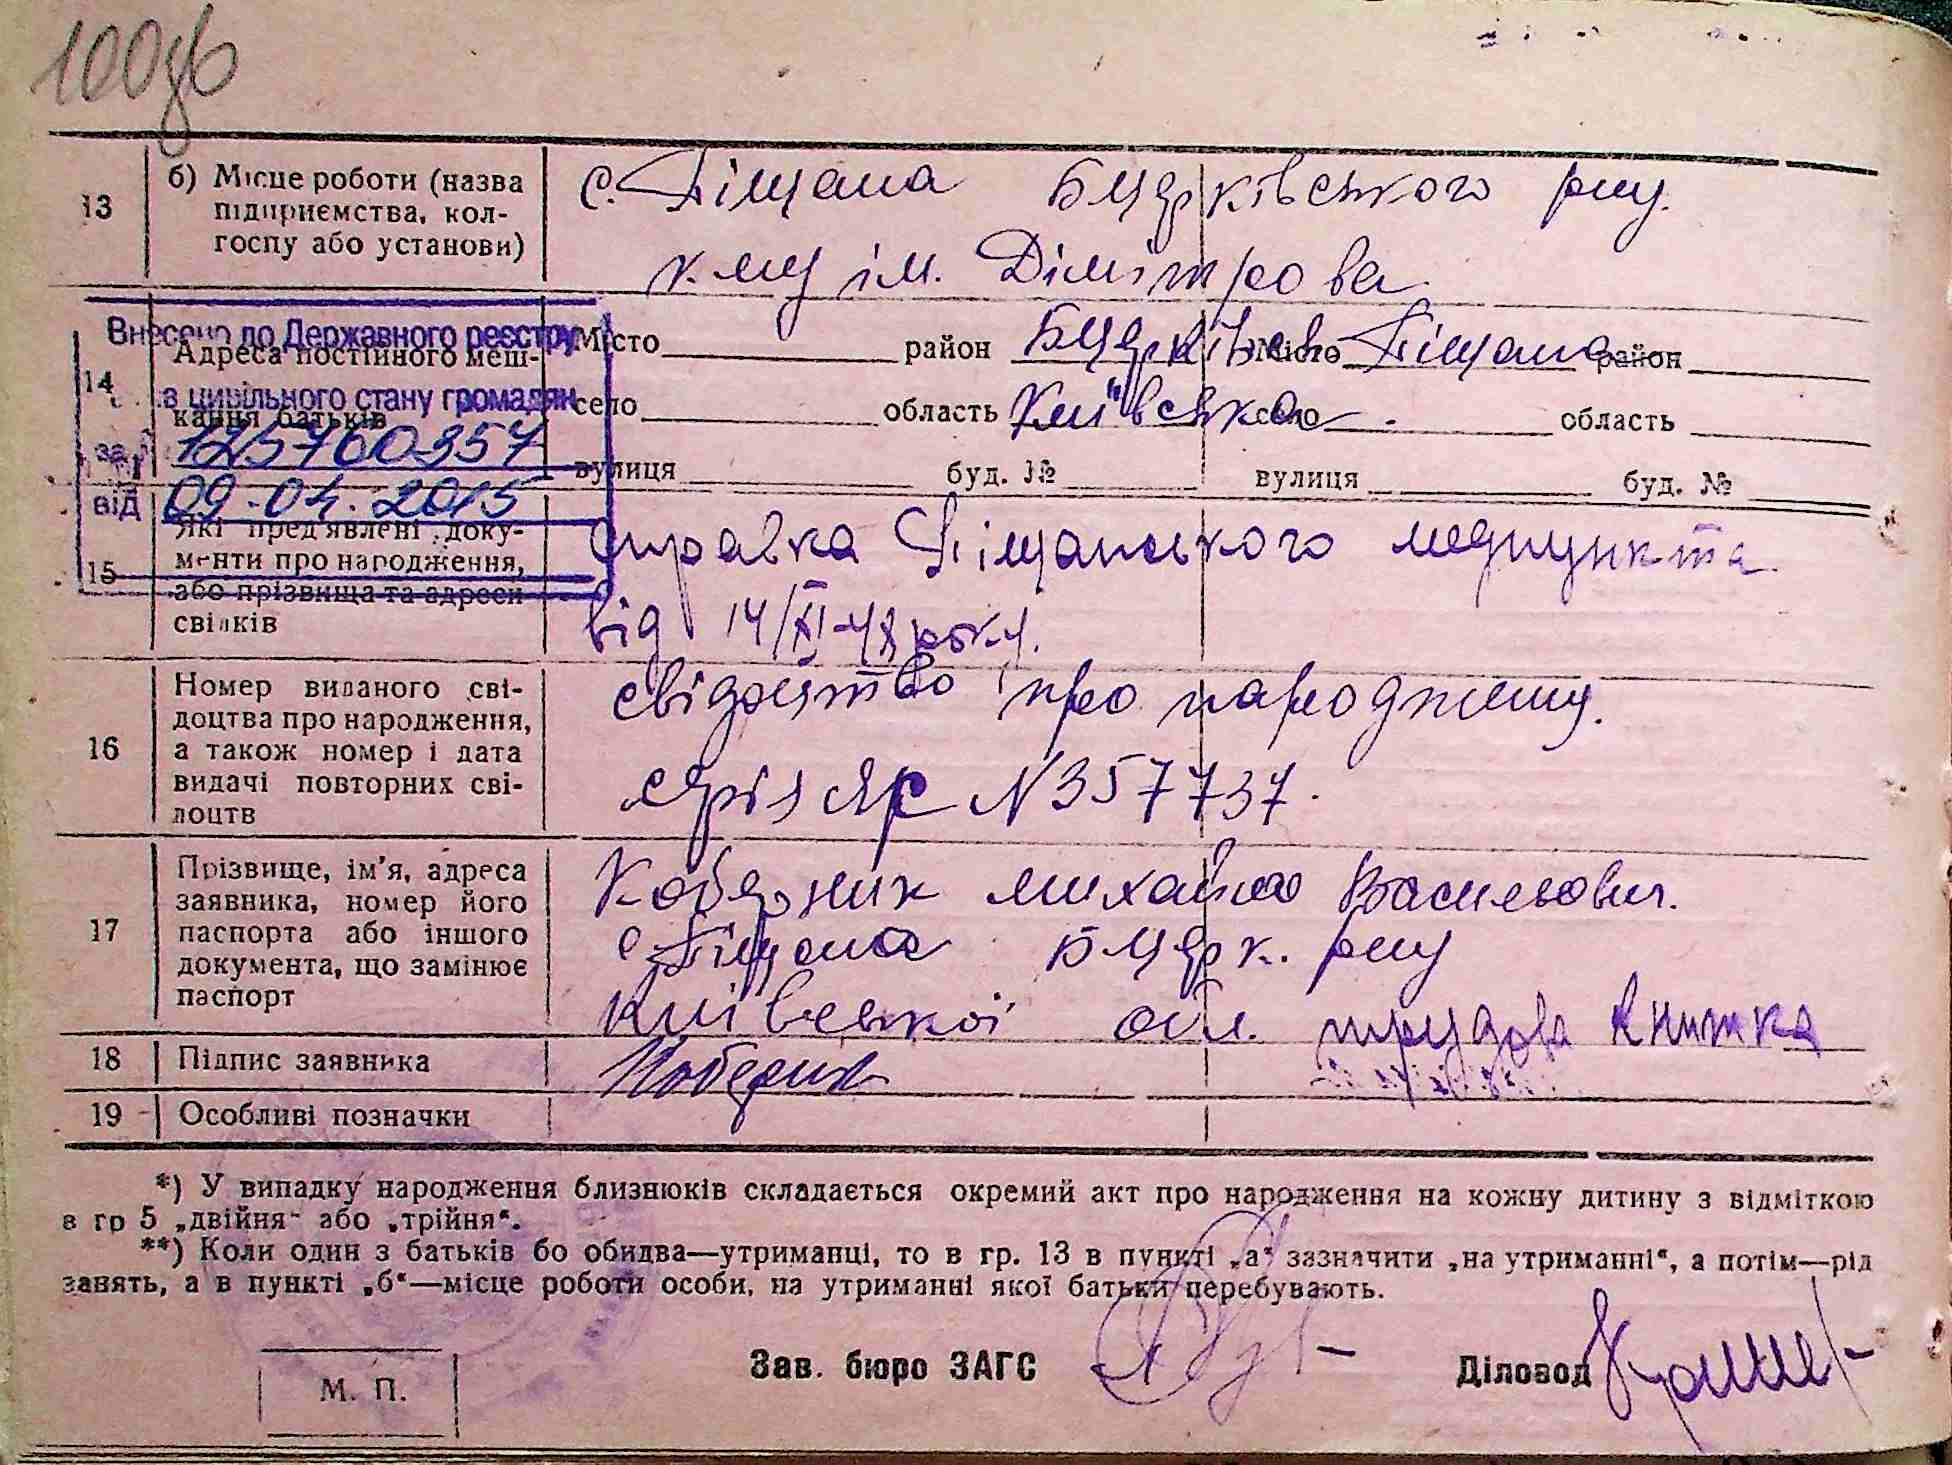 100зв
13
б) Місце роботи (назва
підприємства, кол-
госпу або установи)
с. Піщана Бцерківського р-ну.
к-пу ім. Дімітрова
Внесено до Державного реєстру
з цивільного стану громадян
за 125760357
від 09.04.2015
14
Адреса постійного меш-
кання батьків
Місто район Бцерківськ Місто Піщана район
село область Київська село область
вулиця буд. № вулиця буд. №
15
Які пред'явлені доку-
менти про народження,
або прізвища та адреси
свідків
справка Піщанського медпункта
від 14/XI-48 року.
16
Номер виданого сві-
доцтва про народження,
а також номер і дата
видачі повторних сві-
доцтв
свідоцтво про народженн.
серія ЯР N 357737.
17
Прізвище, ім'я, адреса
заявника, номер його
паспорта або іншого
документа, що замінює
паспорт
Коберник Михайло Васильович.
с. Піщана Бцерк. р-ну
Київської обл. трудова книжка
18
Підпис заявника
Коберник
19
Особливі позначки
*) У випадку народження близнюків складається окремий акт про народження на кожну дитину з відміткою
в гр 5 „двійня“ або „трійня“.
**) Коли один з батьків бо обидва—утриманці, то в гр. 13 в пункті „а“ зазначити „на утриманні“, а потім—рід
занять, а в пункті „б“—місце роботи особи, на утриманні якої батьки перебувають.
М. П.
Зав. бюро ЗАГС
Діловод